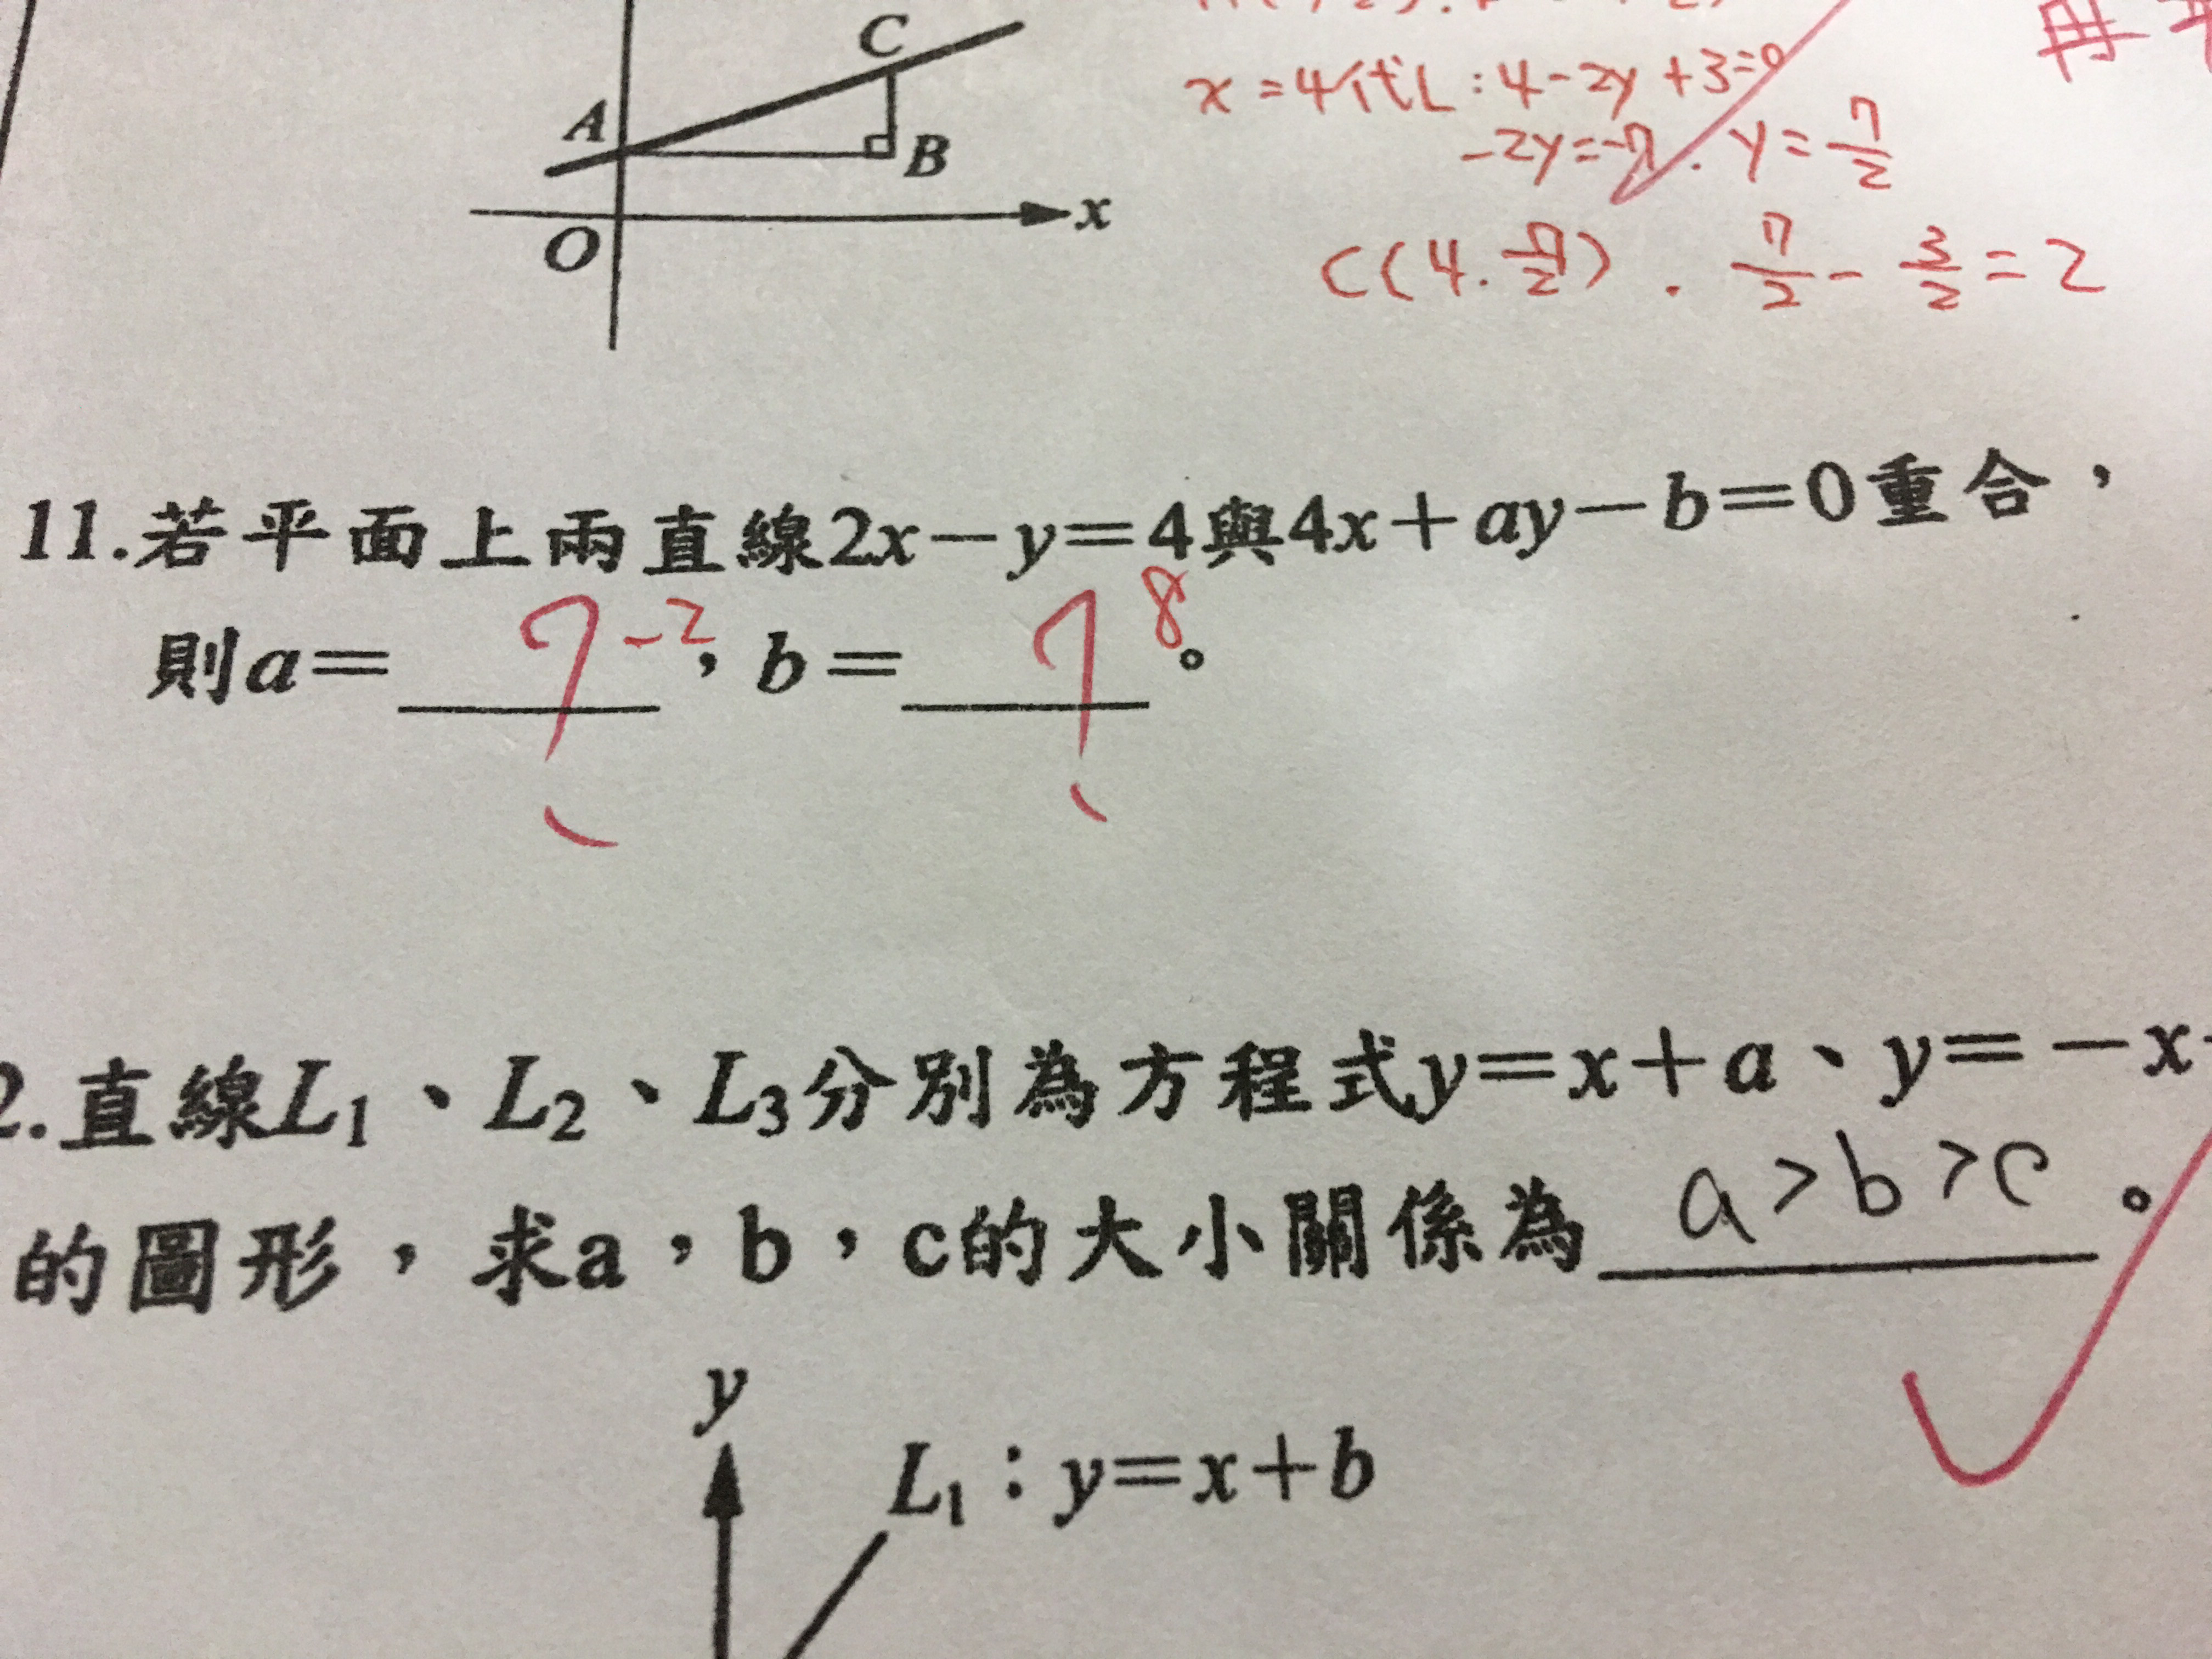 C
x=4代L:4-2y+3=0
A
B
-2y=-7. y=7/2
x
O
C(4.7/2). 7/2-3/2=2
再
11.若平面上兩直線2x-y=4與4x+ay-b=0重合，
則a=____，b=____。
? -2 ? 8
2.直線L₁、L₂、L₃分別為方程式y=x+a、y=-x
的圖形，求a，b，c的大小關係為 a>b>c 。
y
L₁：y=x+b